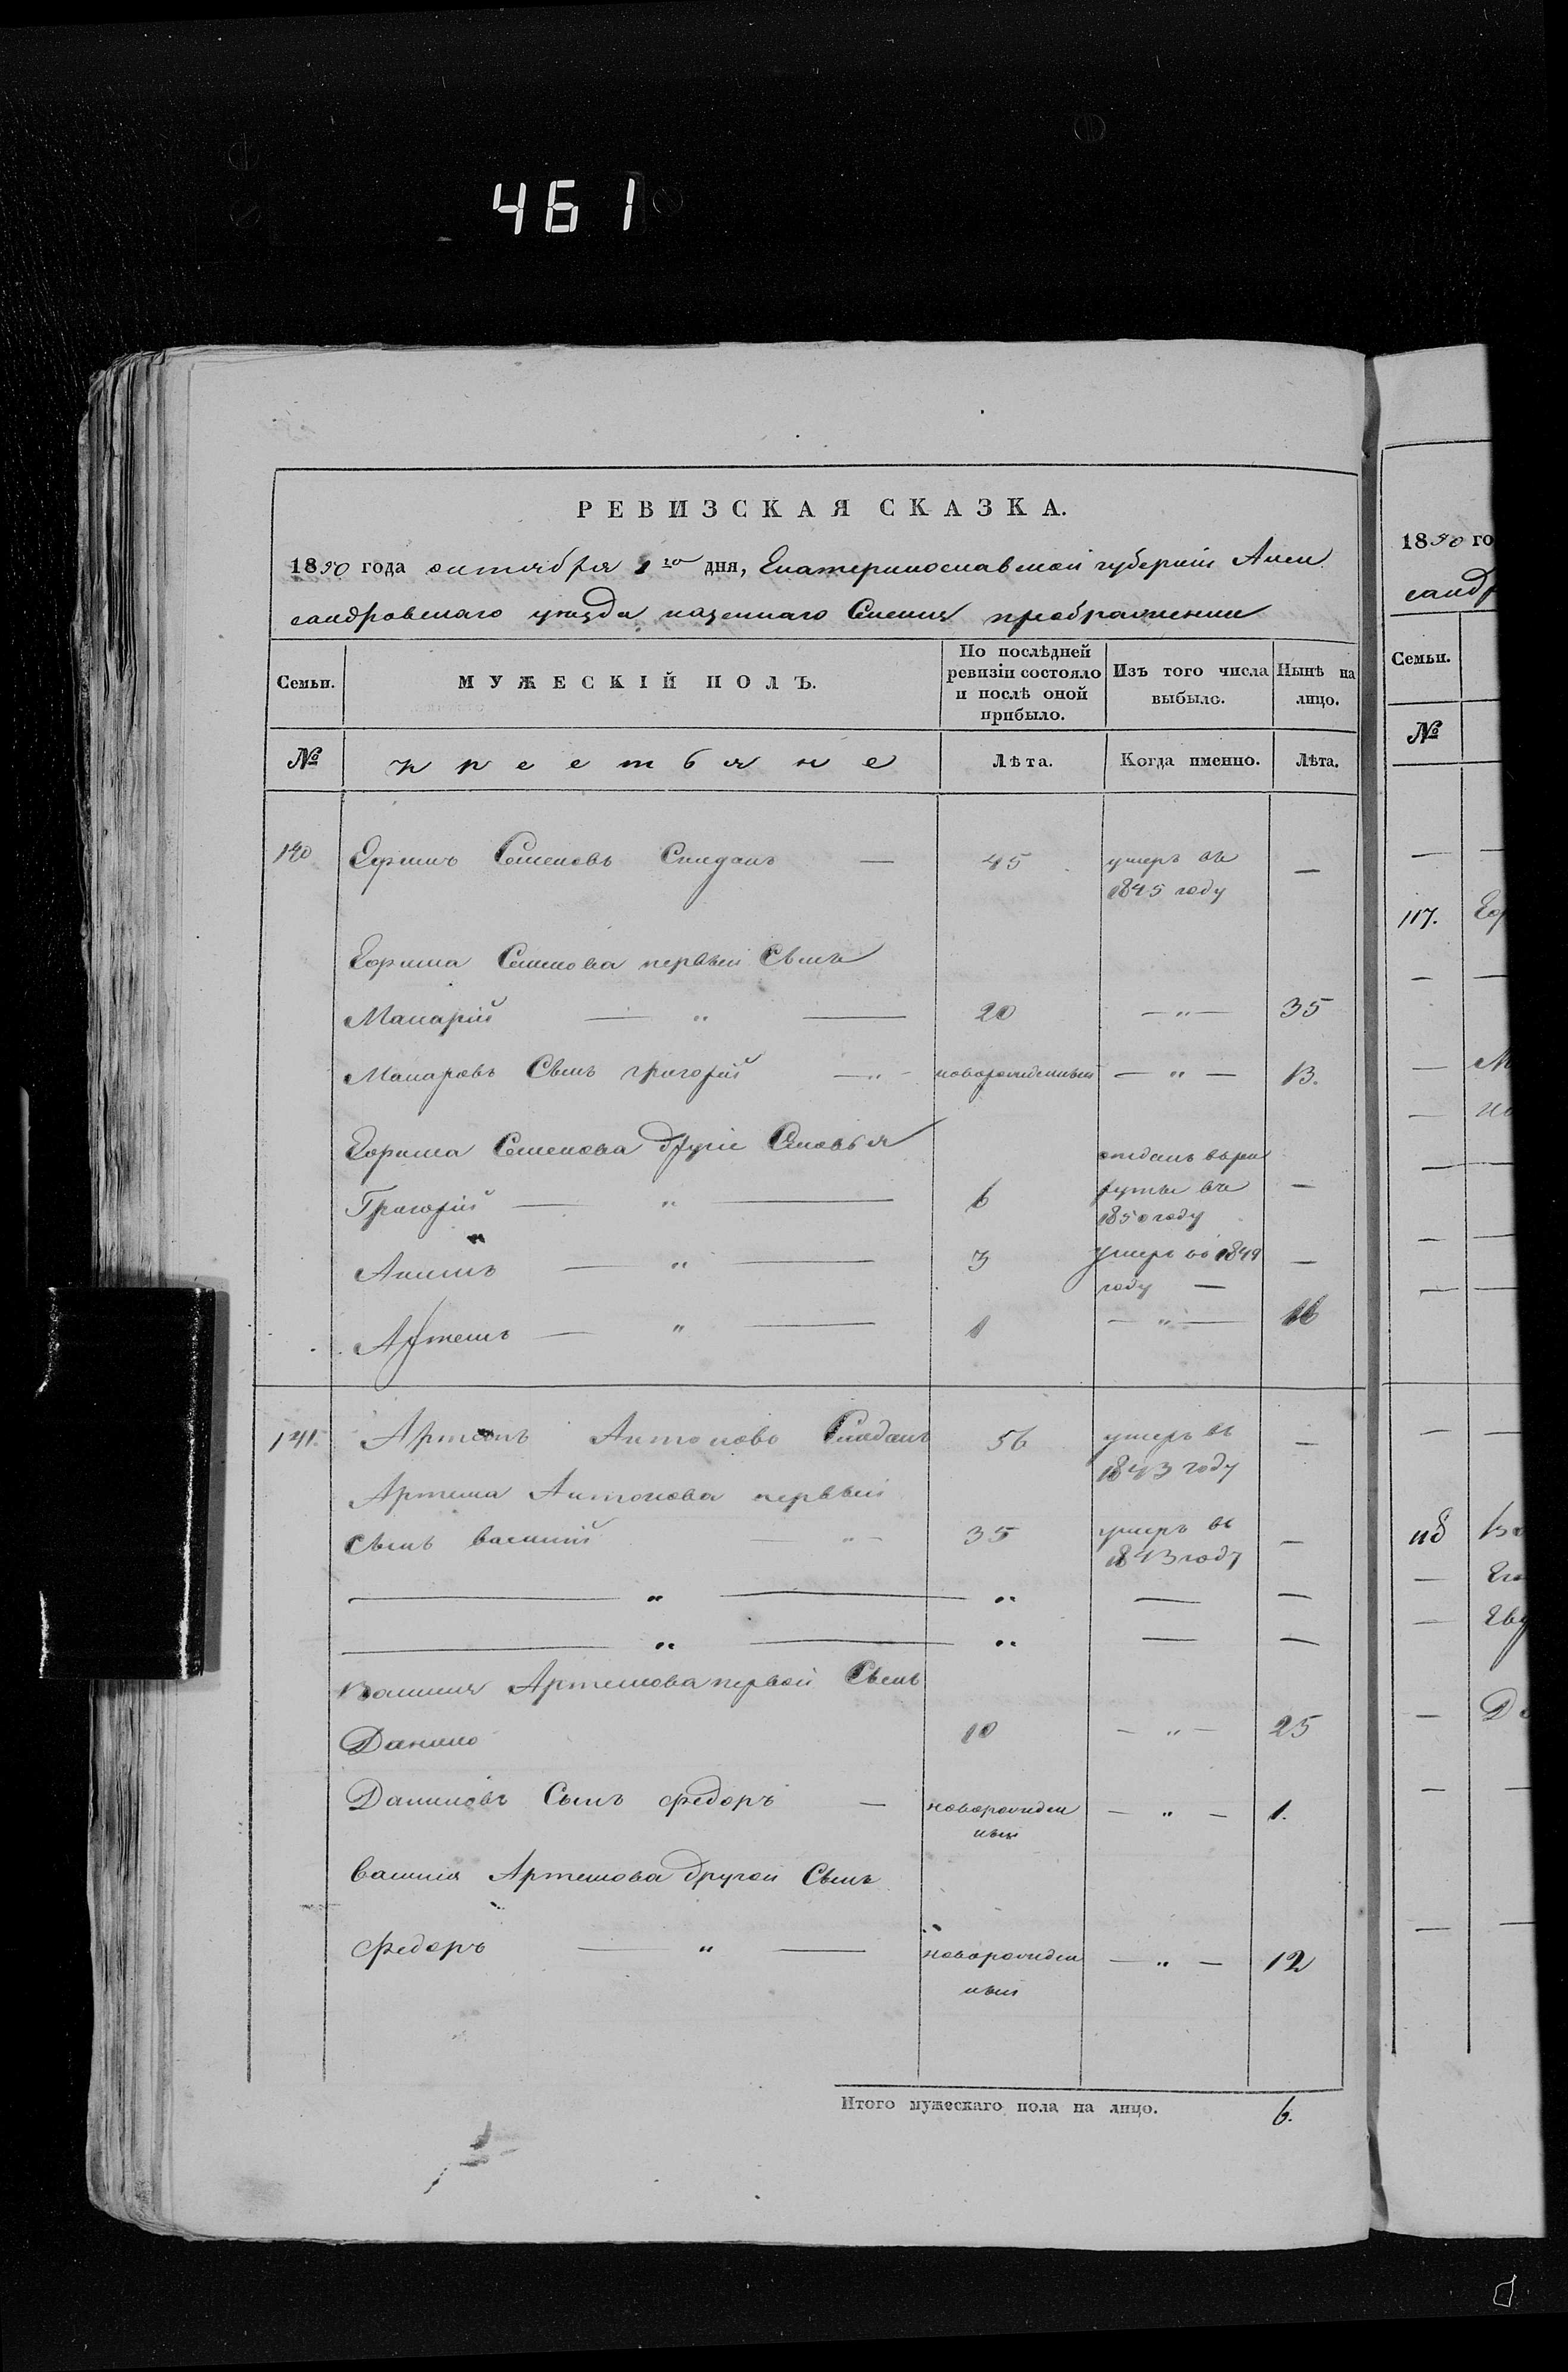 461
РЕВИЗСКАЯ СКАЗКА.
1850 года октября 1го дня, Екатеринославской губернiи Алек
сандровскаго уѣзда казеннаго Селенiя преображенки
Семьи.
МУЖЕСКIЙ ПОЛЪ.
По послѣдней ревизiи состояло и послѣ оной прибыло.
Изъ того числа выбыло.
Нынѣ на лицо.
№
крестьяне
Лѣта.
Когда именно.
Лѣта.
140 Ефимъ Семеновъ — 45 умеръ въ —
1845 году
Ефима Семенова первый Сынъ
Макарiй — „ — 20 — „ — 35
Макаровъ Сынъ григорiй — „ - новорожденный — „ — 13.
Ефима Семенова другiе Сыновья
отданъ въ рек
Григорiй — „ — 6 руты въ —
1850 году
Акимъ — „ — 3 умеръ въ 1849 —
году —
Артемъ — „ — 1 — „ — 16
141. Артемъ Антоновъ 56 умеръ въ —
1843 году
Артема Антонова первый
сынъ василiй — „ - 35 умеръ въ —
1843 году
— „ — „ — —
— „ — „ — —
Василия Артемова первой Сынъ
Данило 10 — „ — 25
Даниловъ Сынъ федоръ — новорожден — „ — 1.
ный
василия Артемова другой Сынъ
федоръ — „ — новорожден — „ — 12
ный
Итого мужескаго пола на лицо. 6.
1850 го
сандр
Семьи.
№
117. Еф
118